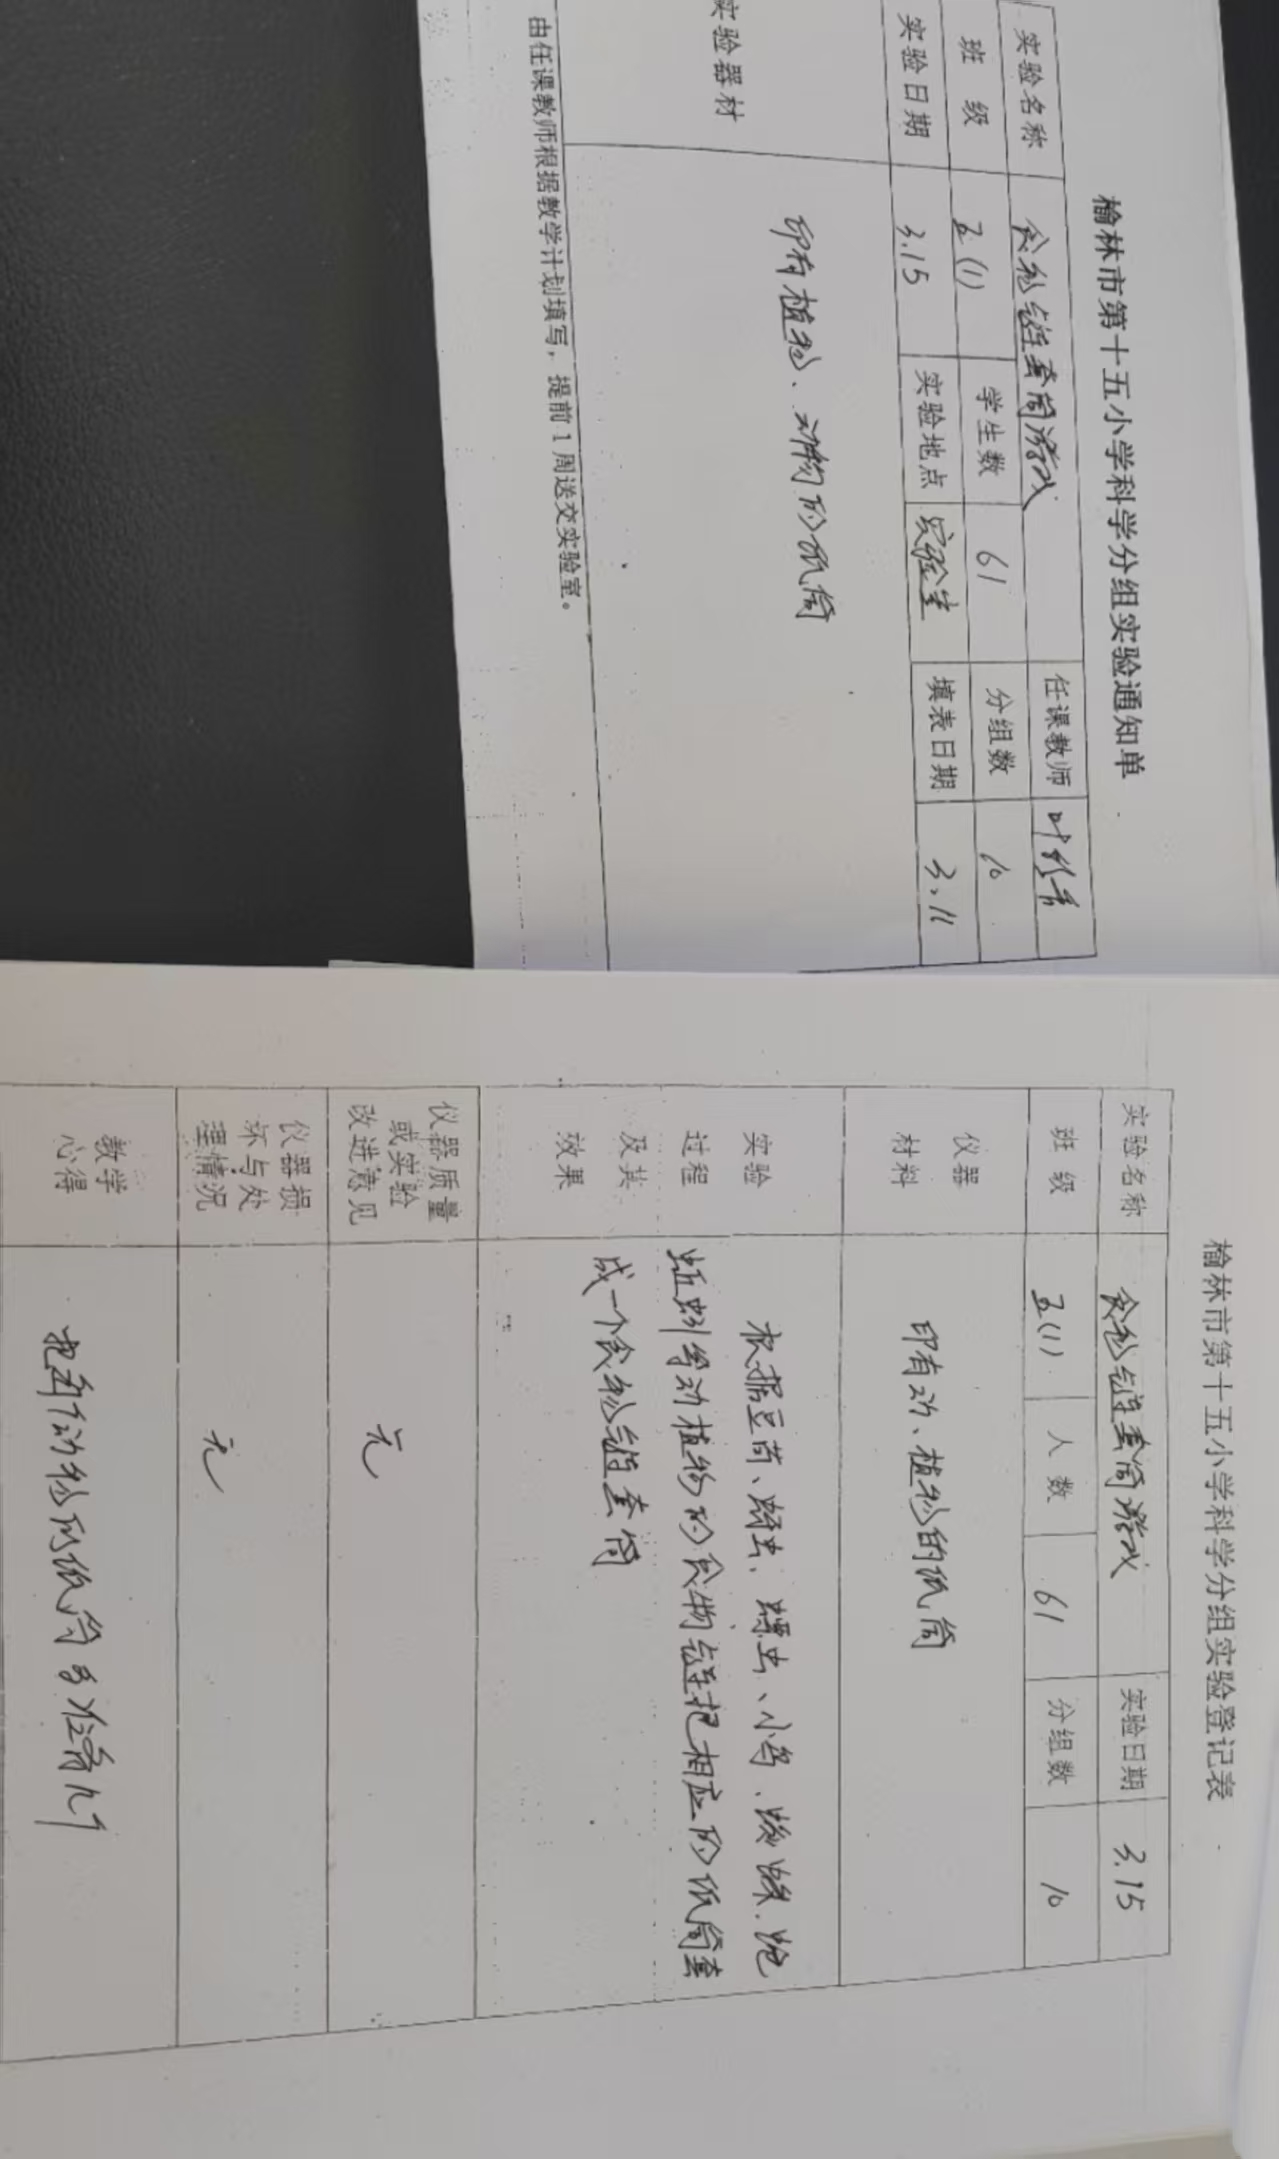 榆林市第十五小学科学分组实验通知单
实验名称 食物链套筒游戏 任课教师 叶
班 级 五(1) 学生数 61 分组数 10
实验日期 3.15 实验地点 实验室 填表日期 3.11
实验器材 印有植物、动物的纸筒
由任课教师根据教学计划填写，提前1周送交实验室。
榆林市第十五小学科学分组实验登记表
实验名称 食物链套筒游戏 实验日期 3.15
班 级 五(1) 人 数 61 分组数 10
仪器材料 印有动、植物的纸筒
实验过程及其效果
根据豆苗、蚜虫、瓢虫、小鸟、
蚯蚓等动植物的食物链把相应的纸筒套
成一个食物链套筒
仪器质量或实验改进意见 无
仪器损坏与处理情况 无
教学心得 动物的纸筒多准备几个